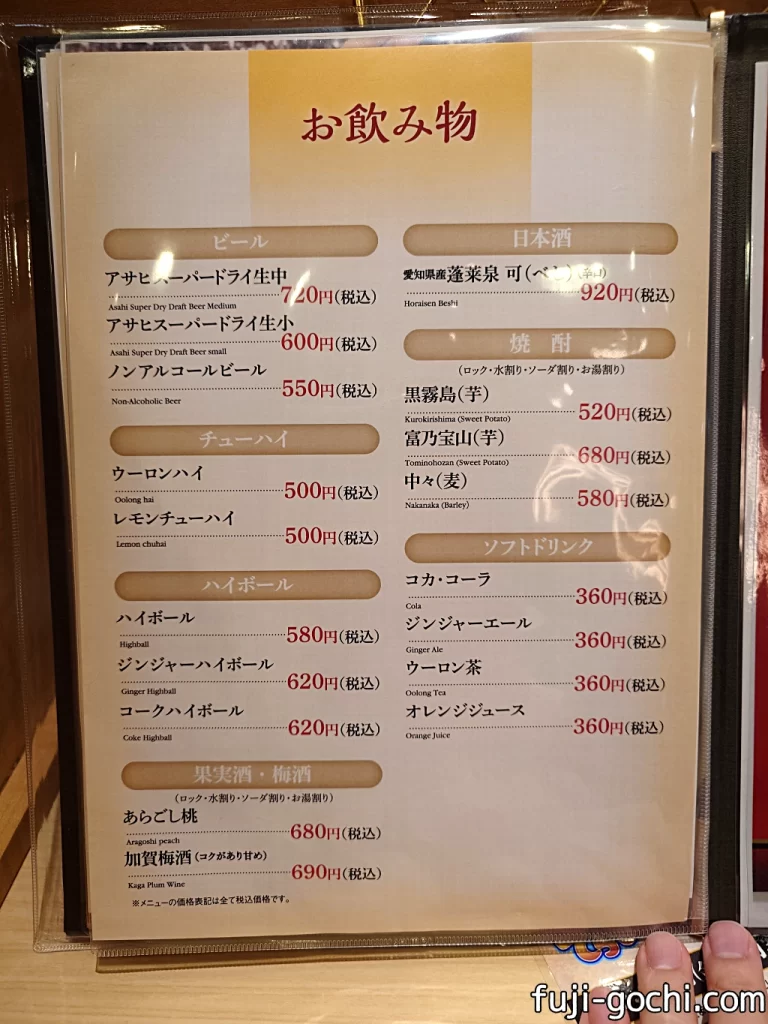 お飲み物
ビール
アサヒスーパードライ生中
720円(税込)
Asahi Super Dry Draft Beer Medium
アサヒスーパードライ生小
600円(税込)
Asahi Super Dry Draft Beer small
ノンアルコールビール
550円(税込)
Non-Alcoholic Beer
チューハイ
ウーロンハイ
500円(税込)
Oolong hai
レモンチューハイ
500円(税込)
Lemon chuhai
ハイボール
ハイボール
580円(税込)
Highball
ジンジャーハイボール
620円(税込)
Ginger Highball
コークハイボール
620円(税込)
Coke Highball
果実酒・梅酒
(ロック・水割り・ソーダ割り・お湯割り)
あらごし桃
680円(税込)
Aragoshi peach
加賀梅酒(コクがあり甘め)
690円(税込)
Kaga Plum Wine
※メニューの価格表記は全て税込価格です。
日本酒
愛知県産 蓬莱泉 可(べし)(辛口)
920円(税込)
Horaisen Beshi
焼 酎
(ロック・水割り・ソーダ割り・お湯割り)
黒霧島(芋)
520円(税込)
Kurokirishima (Sweet Potato)
富乃宝山(芋)
680円(税込)
Tominohozan (Sweet Potato)
中々(麦)
580円(税込)
Nakanaka (Barley)
ソフトドリンク
コカ・コーラ
360円(税込)
Cola
ジンジャーエール
360円(税込)
Ginger Ale
ウーロン茶
360円(税込)
Oolong Tea
オレンジジュース
360円(税込)
Orange Juice
fuji-gochi.com